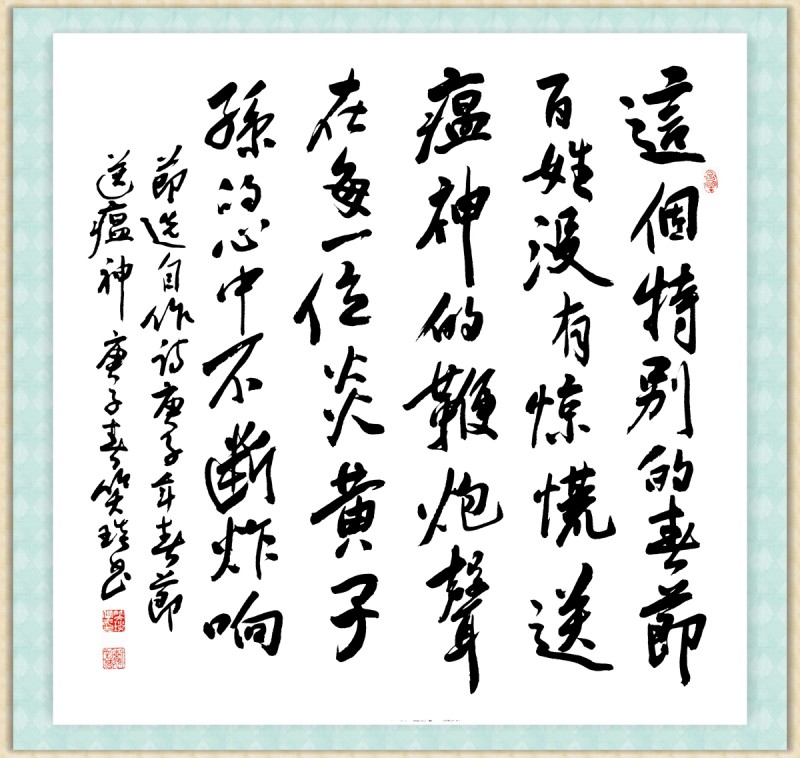 這個特别的春節
百姓没有惊慌送
瘟神的鞭炮聲
在每一位炎黄子
孫的心中不断炸响
節选自作诗庚子年春節
送瘟神 庚子春笑琰书